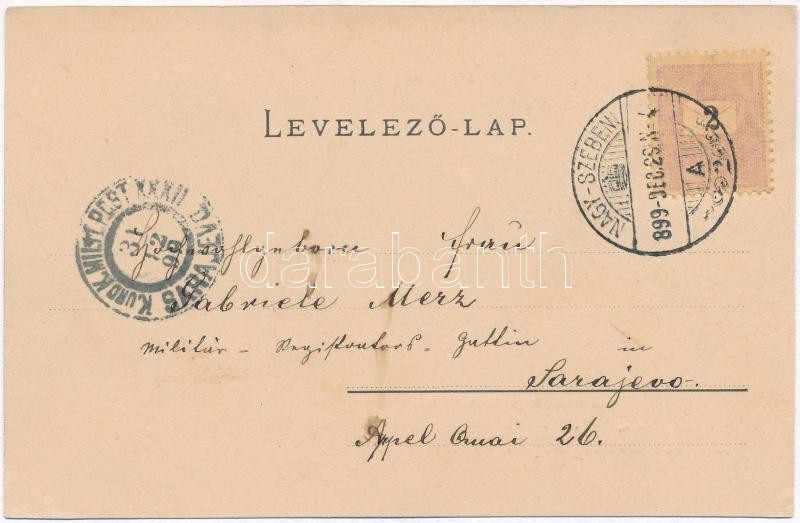 LEVELEZŐ-LAP.
NAGY-SZEBEN
899 DEC 29
A
K. UND K. MILIT. POST XXXII
SARAJEVO
31
12
99
Hochwohlgeborne Frau
Gabriele Merz
Militär - Registrators - Gattin in
Sarajevo.
Appel Quai 26.
darabanth